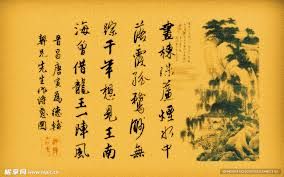 畫棟珠簾煙水中
落霞孤鶩渺無
蹤千年想見王南
海曾借龍王一陣風
晉昌唐寅為德輔
郭先生作詩意圖
昵享网